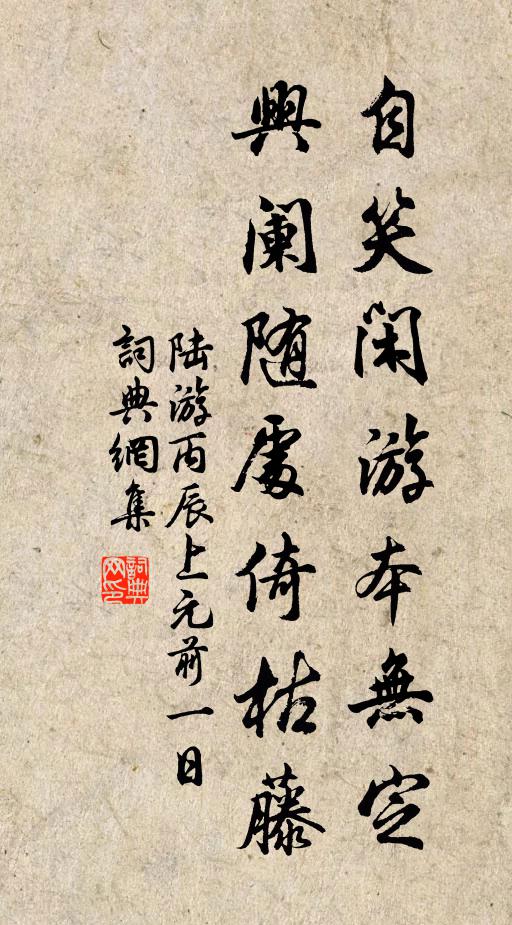 自笑闲游本無定
興阑随處倚枯藤
陆游丙辰上元前一日
詞典網集
詞典网印